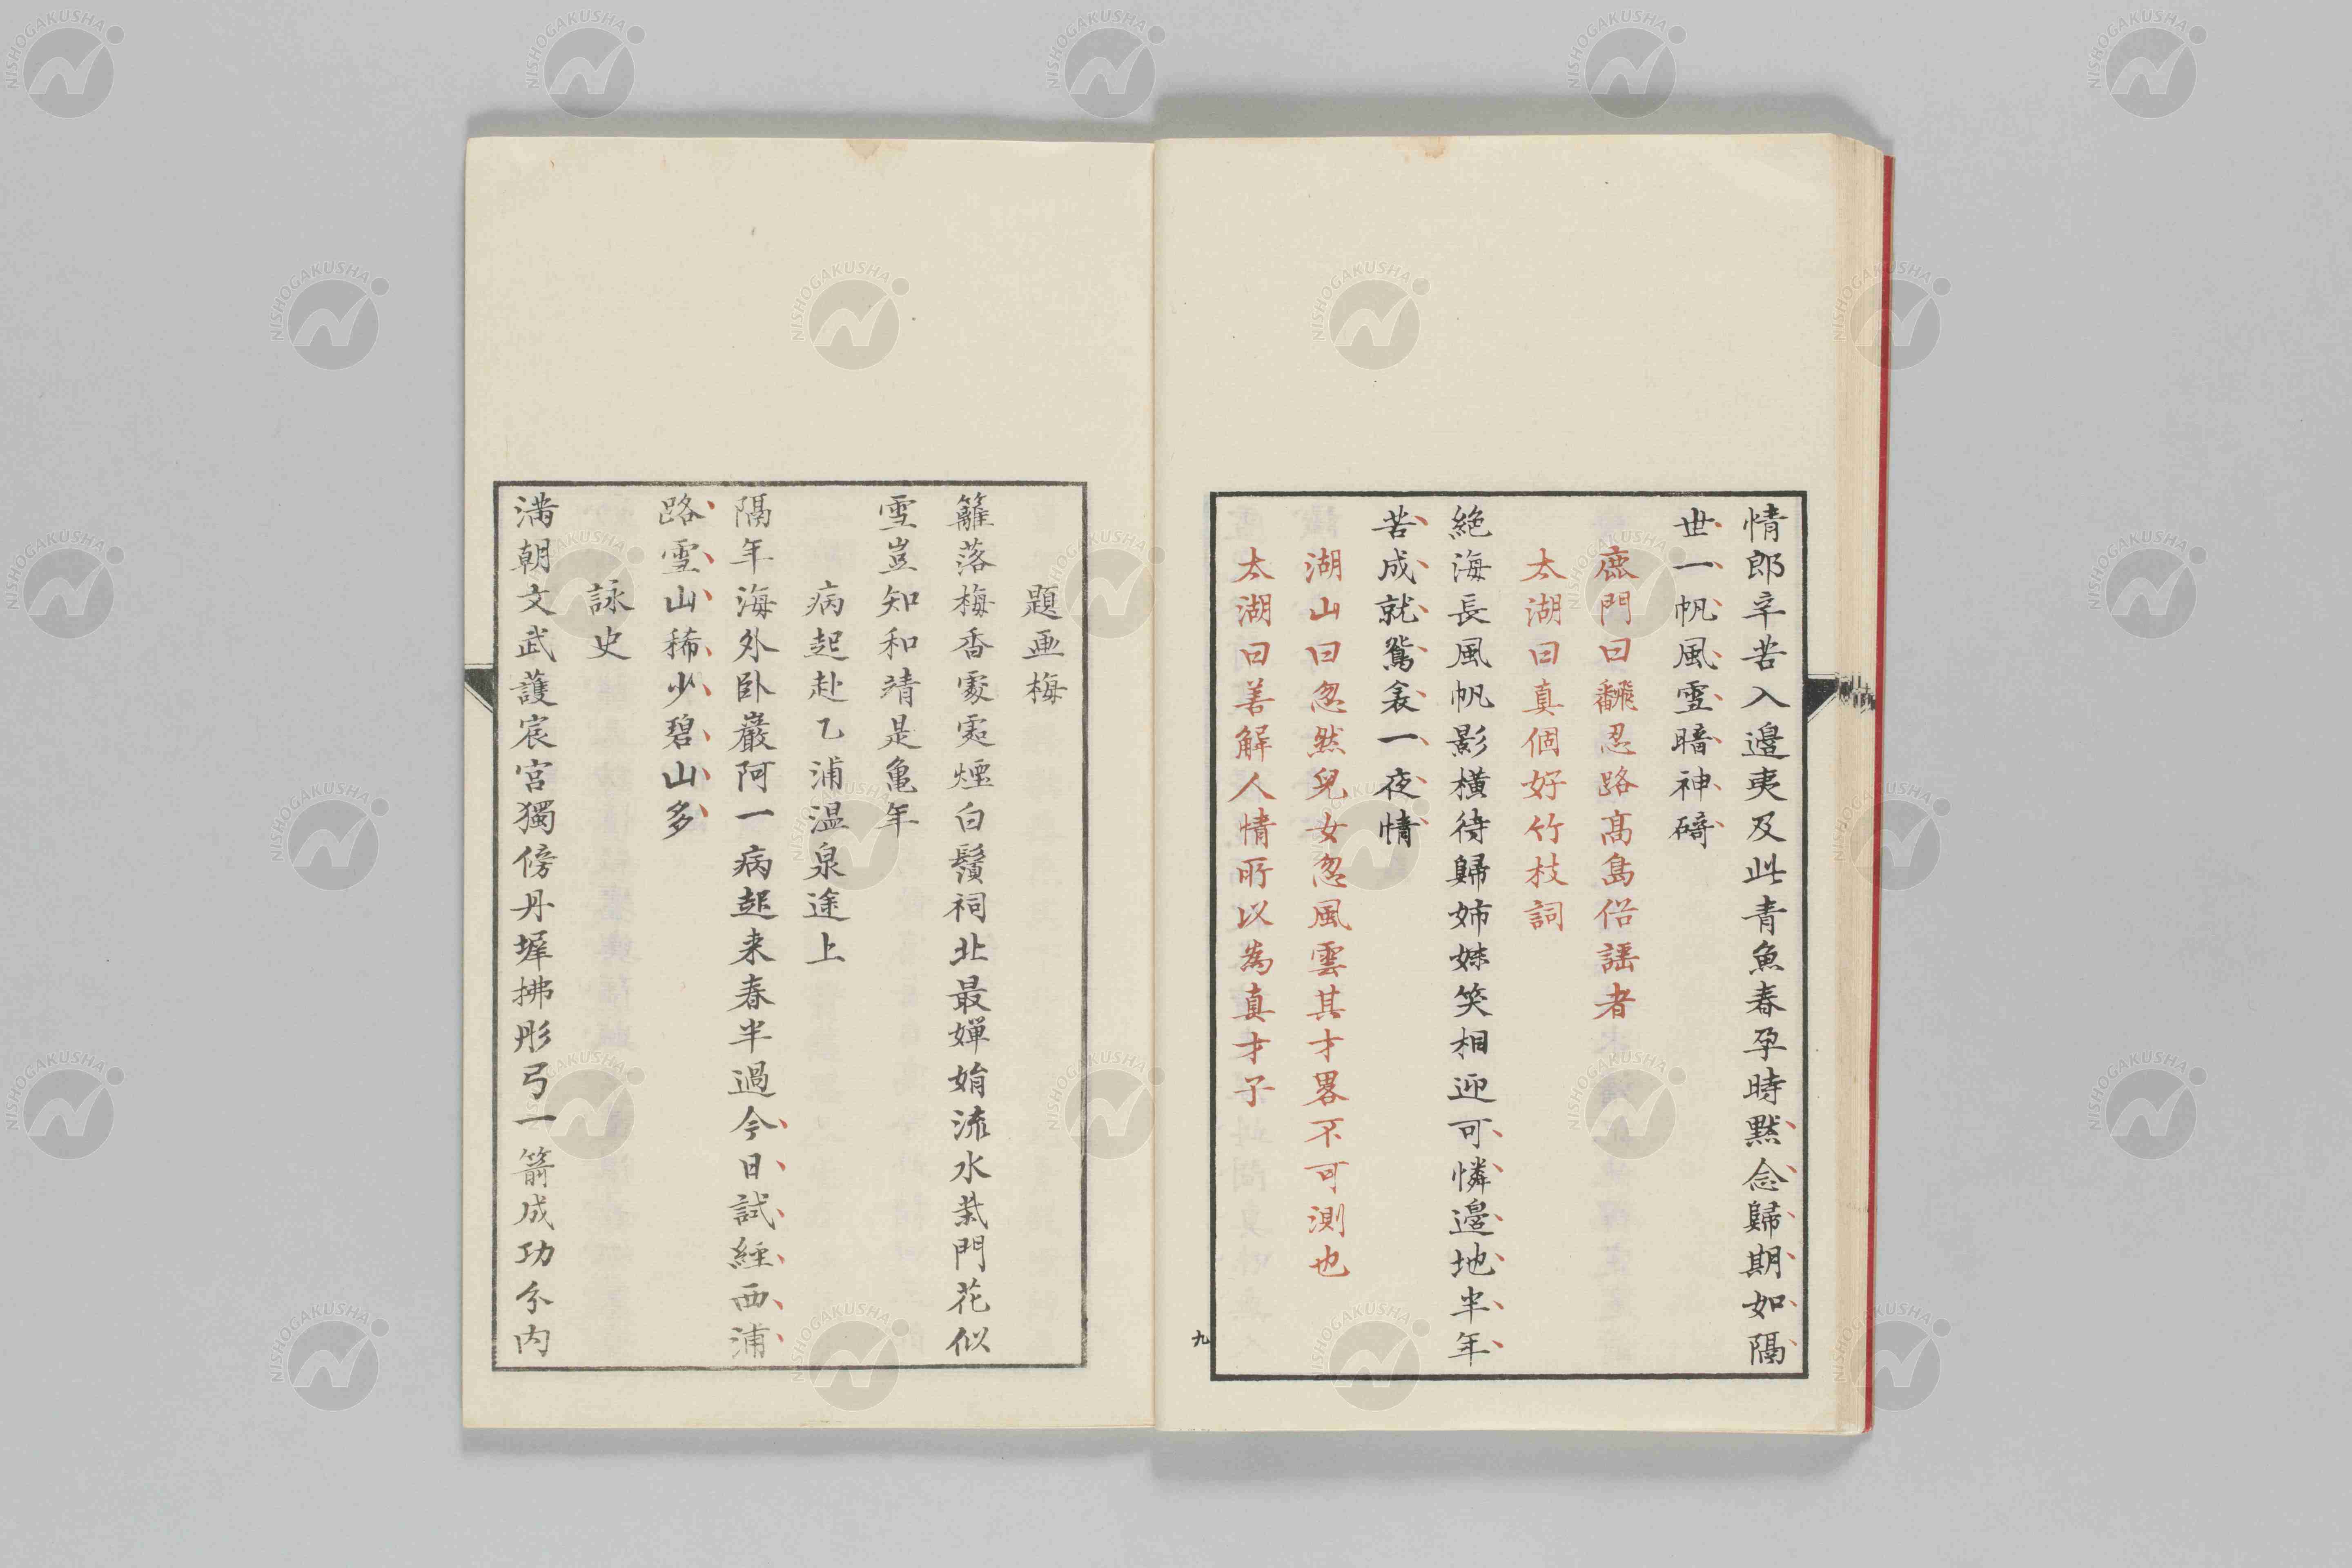 情郎辛苦入邊夷及此青魚春孕時黙念歸期如隔
世一帆風雪暗神碕
鹿門曰飜忍路髙島俗謡者
太湖曰真個好竹枝詞
絶海長風帆影横待歸姉妹笑相迎可憐邊地半年
苦成就鴛衾一夜情
湖山曰忽然兒女忽風雲其才畧不可測也
太湖曰善解人情所以為真才子
九
題画梅
籬落梅香處〻煙白鬚祠北最嬋娟流水柴門花似
雪豈知和靖是亀年
病起赴乙浦温泉途上
隔年海外卧巖阿一病起来春半過今日試經西浦
路雪山稀少碧山多
詠史
満朝文武護宸宮獨傍丹墀拂彤弓一箭成功分内
NISHOGAKUSHA